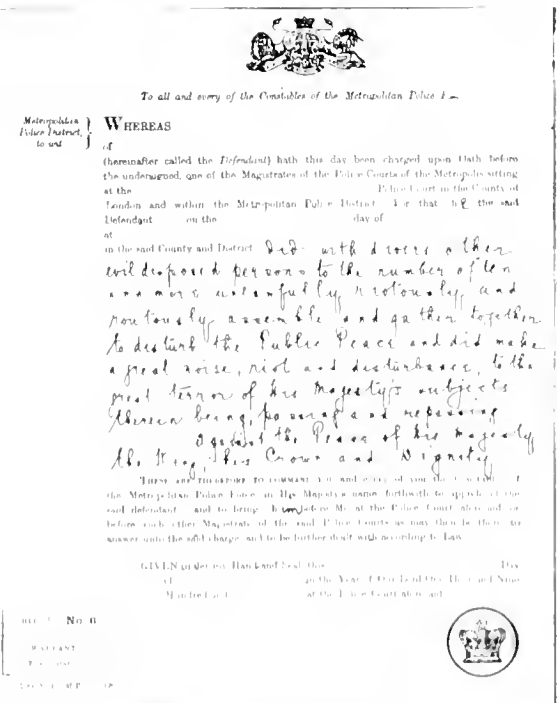 To all and every of the Constables of the Metropolitan Police
Metropolitan
Police District,
to wit
WHEREAS
of
(hereinafter called the Defendant) hath this day been charged upon Oath before
the undersigned, one of the Magistrates of the Police Courts of the Metropolis sitting
at the Police Court in the County of
London and within the Metropolitan Police District For that he the said
Defendant on the day of
at
in the said County and District did with divers other
evil disposed persons to the number of ten
and more unlawfully, riotously, and
routously assemble and gather together
to disturb the Public Peace and did make
a great noise, riot and disturbance, to the
great terror of His Majesty's subjects
therein being, passing and repassing
against the Peace of His Majesty
the King, His Crown and Dignity
THESE ARE THEREFORE TO COMMAND you and every of you the
the Metropolitan Police Force in His Majesty's name forthwith to apprehend the
said defendant and to bring him before Me at the Police Court aforesaid or
before such other Magistrate of the said Police Courts as may then be there to
answer unto the said charge, and to be further dealt with according to Law
GIVEN under my Hand and Seal this Day
of in the Year of Our Lord One Thousand Nine
Hundred and at the Police Court aforesaid
No 6
WARRANT